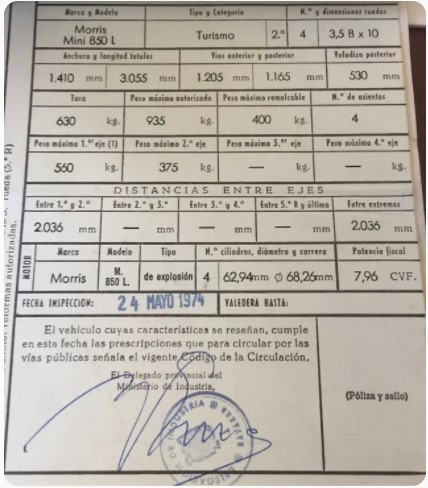 Marca y Modelo Tipo y Categoría N.º y dimensiones ruedas
Morris
Mini 850 L Turismo 2.ª 4 3,5 B x 10
Anchura y longitud totales Vías anterior y posterior Voladizo posterior
1.410 mm 3.055 mm 1.205 mm 1.165 mm 530 mm
Tara Peso máximo autorizado Peso máximo remolcable N.º de asientos
630 kg. 935 kg. 400 kg. 4
Peso máximo 1.er eje (1) Peso máximo 2.º eje Peso máximo 3.er eje Peso máximo 4.º eje
560 kg. 375 kg. — kg. — kg.
DISTANCIAS ENTRE EJES
Entre 1.º y 2.º Entre 2.º y 3.º Entre 3.º y 4.º Entre 5.ª R y último Entre extremos
2.036 mm — mm — mm — mm 2.036 mm
MOTOR
Marca Modelo Tipo N.º cilindros, diámetro y carrera Potencia fiscal
Morris M. 850 L. de explosión 4 62,94mm Ø 68,26mm 7,96 CVF.
FECHA INSPECCION: 24 MAYO 1974 VALEDERA HASTA:
El vehículo cuyas características se reseñan, cumple
en esta fecha las prescripciones que para circular por las
vías públicas señala el vigente Código de la Circulación.
El Delegado provincial del
Ministerio de Industria,
(Póliza y sello)
DE INDUSTRIA
rueda (5.ª R)
reformas autorizadas.